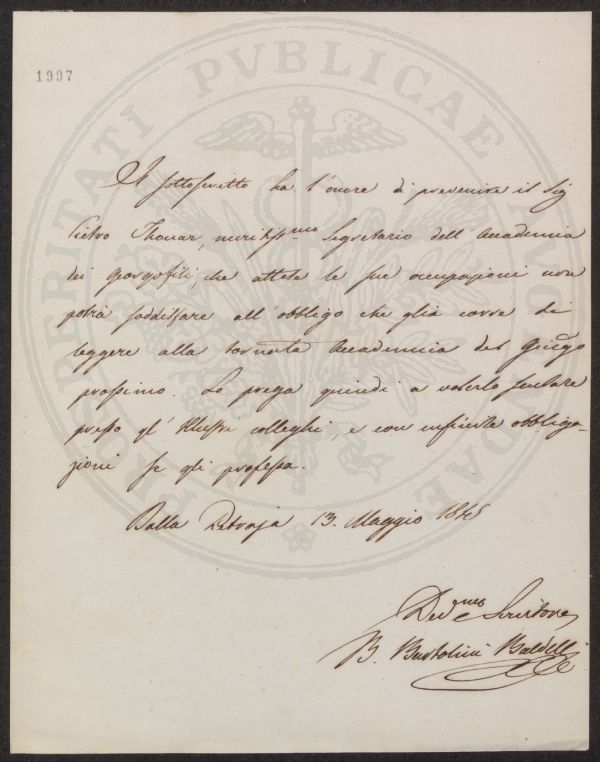 1997
PROSPERITATI PVBLICAE AVGENDAE
Il sottoscritto ha l'onore di prevenire il Sig
Pietro Thouar, meritiss.mo Segretario dell'Accademia
dei Georgofili, che attese le sue occupazioni non
potrà soddisfare all'obbligo che glia corre di
leggere alla tornata Accademica del Giugo
prossimo. Lo prega quindi a volerlo scusare
presso gl'Illustri colleghi, e con infinite obbliga-
zioni se gli professa.
Dalla Petraja 13. Maggio 1845
Dev.mo Servitore
B. Bartolini Baldelli